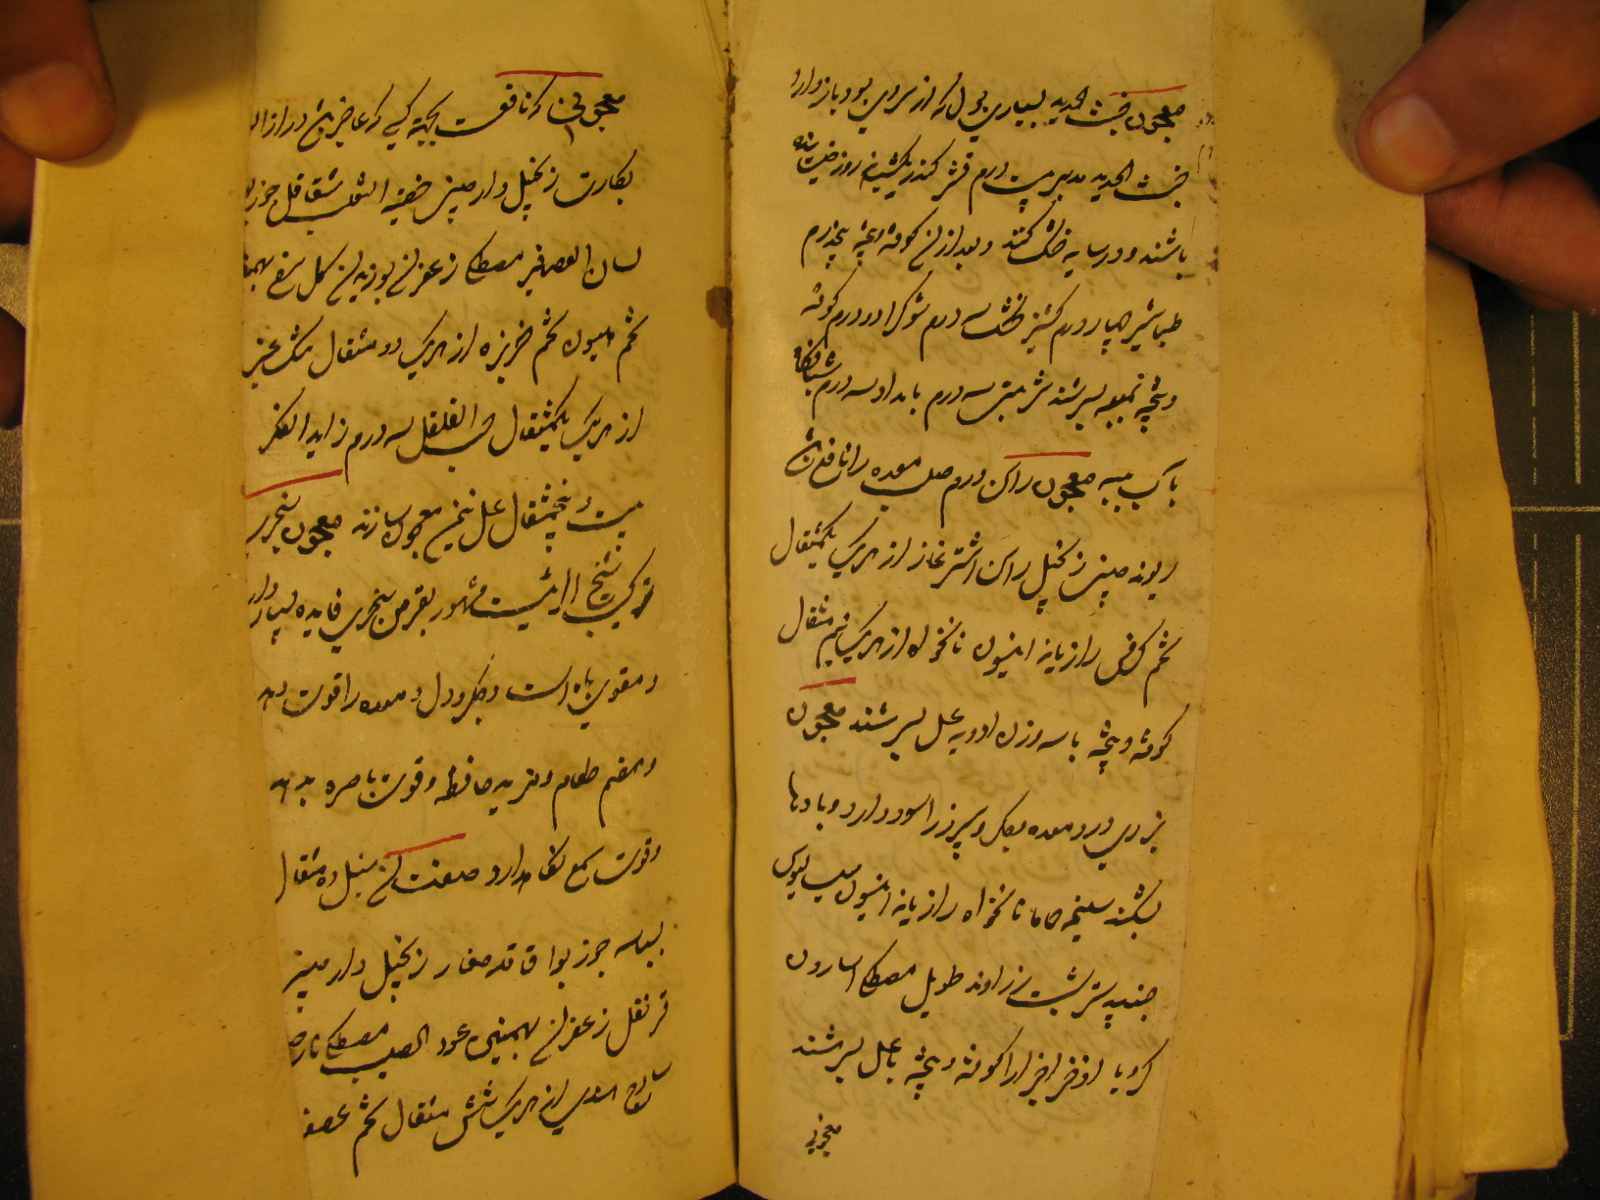 معجون خبث الحدید بسیاری بول که از سردی بود باز دارد
خبث الحدید مدبر بیست درم قشر کندر یکشبانه روز خیسانیده
باشند و در سایه خشک کنند و بعد از ان کوفته و بیخته پنجدرم
طباشیر چهار درم کشنیز خشک سه درم شوکران دو درم کوفته
و بیخته بمیبه بسرشند شربتی سه درم بامداد و سه درم شبانگاه
بآب میبه معجون راسن ورم صلب معده را نافع باشد
ریوند چینی زنجبیل راسن اشترغاز از هریک یکمثقال
تخم کرفس رازیانه انیسون نانخواه از هریک نیم مثقال
کوفته و بیخته با سه وزن ادویه عسل بسرشند معجون
بزوری درد معده و جگر و سپرز را سود دارد و بادها
بشکند سلیخه حاما نانخواه رازیانه انیسون سیسالیوس
جندبیدستر شبت زراوند طویل مصطکی اسارون
کرویا اذخر اجزا را کوفته و بیخته با عسل بسرشند
معجونی
معجونی که نافعست بجهة کسی که عاجز باشد از ازاله
بکارت زنجبیل دارچینی خصیة الثعلب شقاقل جوزبوا
لسان العصافیر مصطکی زعفران بوزیدان گل سرخ بهمن
تخم هلیون تخم خربزه از هریک دو مثقال مشک عنبر
از هریک یکمثقال حب الفلفل سه درم زاید الفکر
بیست و پنجمثقال عسل بثمن معجون سازند معجون سنجری
ترکیب شیخ الرئیست مشهور بقرص سنجری فایده بسیار دارد
و مقوی باه است و جگر و دل و معده را قوت دهد
و هضم طعام و مزید حافظه و قوت باصره بدهد
و قوت سمع نگاه دارد صفت ان سنبل ده مثقال
بسباسه جوزبوا قاقله صغار زنجبیل دارچینی
قرنفل زعفران بهمنین عود الصلیب مصطکی نارمشک
ساذج هندی از هریک شش مثقال تخم عصفر